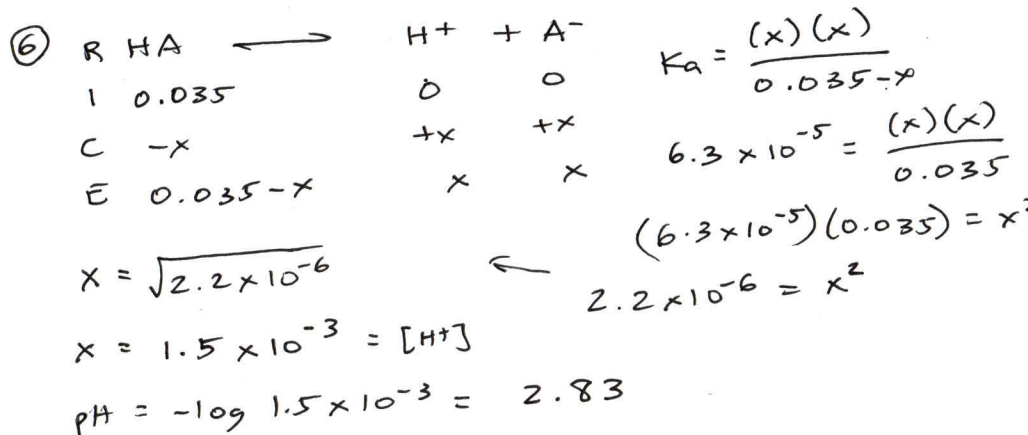 ⑥ R HA ⟷ H⁺ + A⁻
I 0.035 0 0
C -x +x +x
E 0.035-x x x
Ka = (x)(x) / 0.035-x
6.3 x 10⁻⁵ = (x)(x) / 0.035
(6.3x10⁻⁵)(0.035) = x²
2.2x10⁻⁶ = x²
← 
x = √2.2x10⁻⁶
x = 1.5 x 10⁻³ = [H+]
pH = -log 1.5x10⁻³ = 2.83